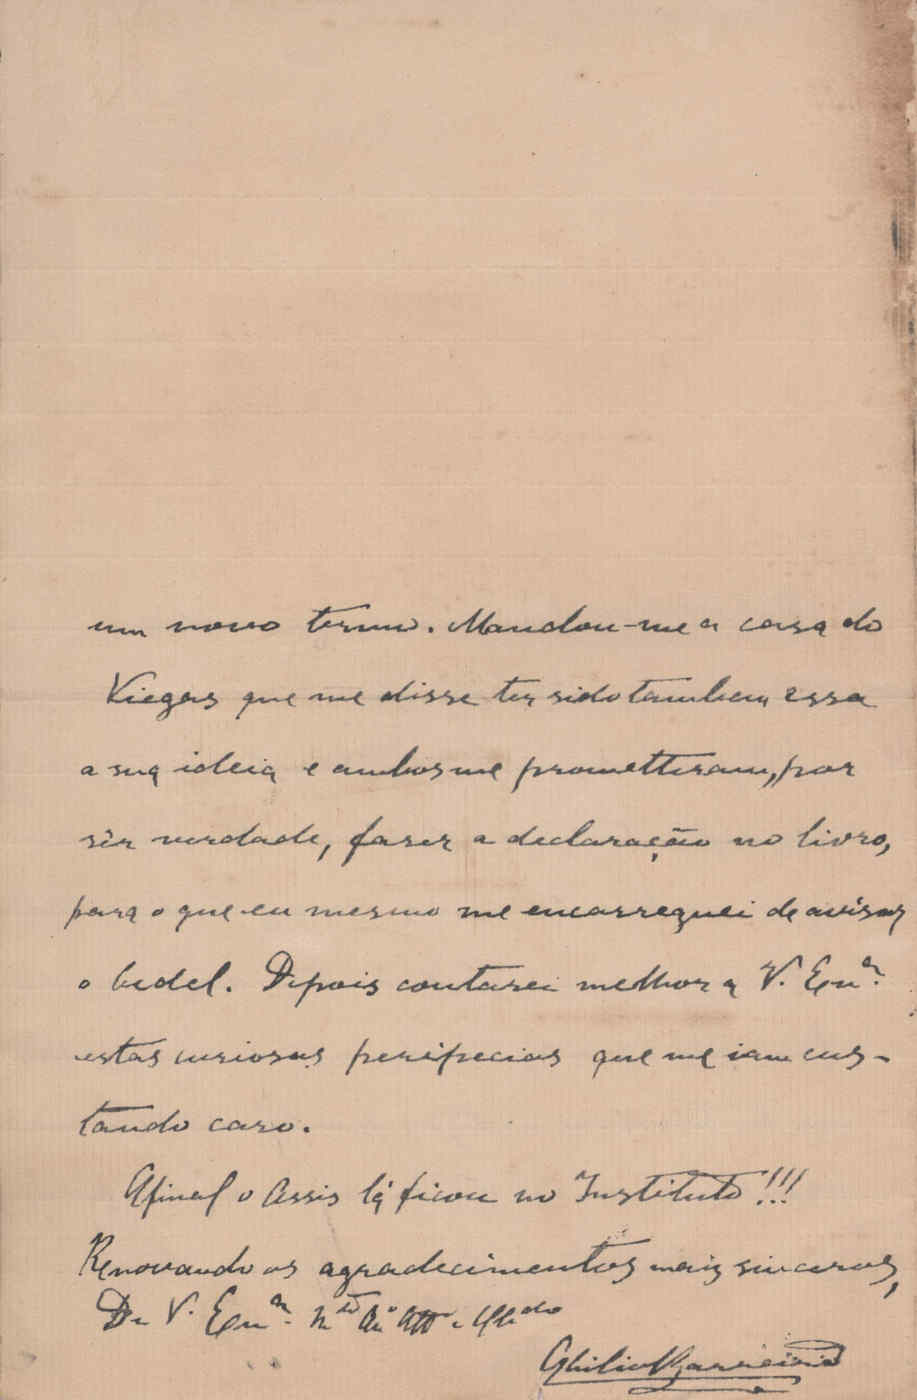 um novo termo. Mandou-me a casa do
Viegas que me disse ter sido tambem essa
a sua ideia e ambos me prometteram, por
sêr verdade, faser a declaração no livro,
para o que eu mesmo me encarreguei de avisar
o bedel. Depois contarei melhor a V. Exª.
estas curiosas peripecias que me iam cus-
tando caro.
Afinal o Assis lá ficou no Instituto!!!
Renovando os agradecimentos mais sinceros,
De V. Exª. Attº e